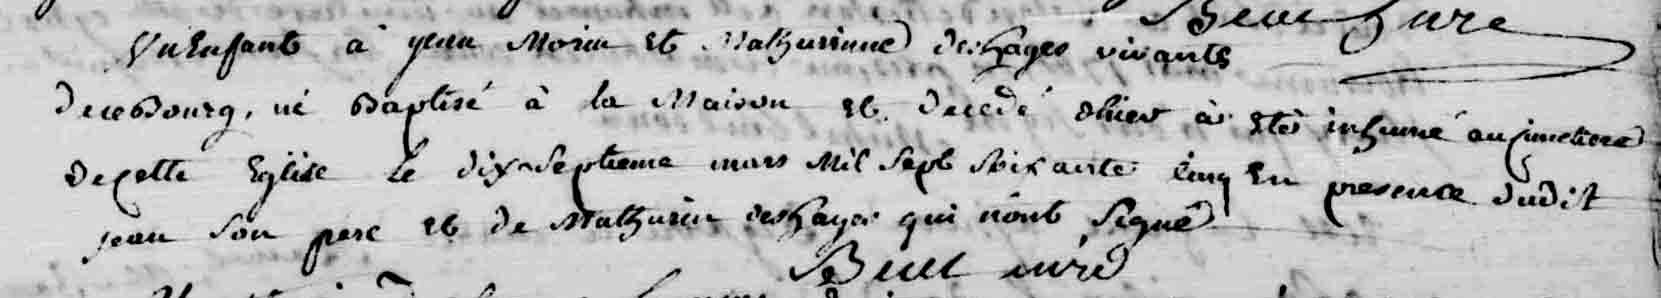 Beul Curé
Un Enfant à jean Morin et Mathurinne deshayes vivants
de ce Bourg, né Baptisé à la Maison et decedé d'hier à eté inhumé au cimetiere
de cette Eglise le dix-septieme mars Mil Sept Soixante cinq En presence dudit
jean Son pere et de Mathurin deshayes qui n'ont Signé
Beul curé